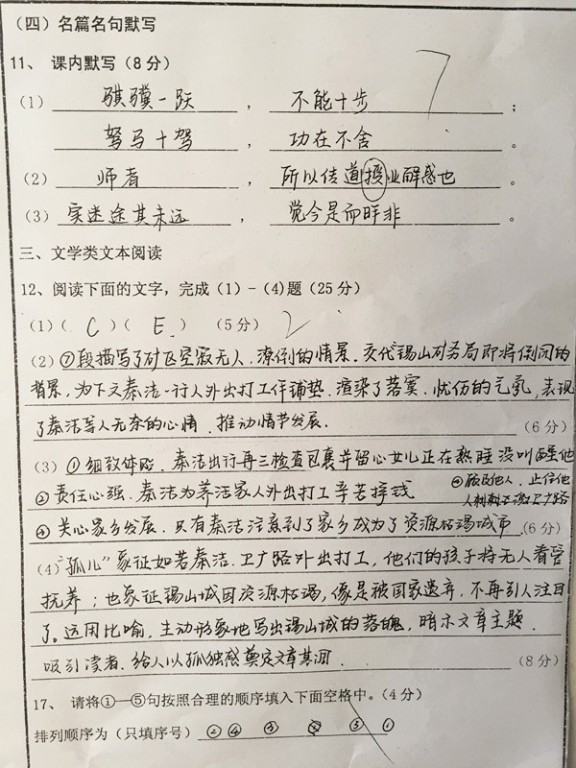 （四）名篇名句默写
11、 课内默写（8分） 7
（1） 骐骥一跃 ， 不能十步 ；
驽马十驾 ， 功在不舍 。
（2） 师者 ， 所以传道授业解惑也 。
（3） 实迷途其未远 ， 觉今是而昨非 。
三、文学类文本阅读
12、阅读下面的文字，完成（1）-（4）题（25分）
（1）（ C ）（ E ） （5分） 2
（2）⑦段描写了矿区空寂无人、潦倒的情景，交代锡山矿务局即将倒闭的
背景，为下文秦浩一行人外出打工作铺垫，渲染了落寞、忧伤的气氛，表现
了秦浩等人无奈的心情，推动情节发展. （6分）
（3）①细致体贴，秦浩出行再三检查包裹并留心女儿正在熟睡没叫醒他
②责任心强，秦浩为养活家人外出打工辛苦挣钱
④顾及他人，
④关心家乡发展，只有秦浩注意到了家乡成为了资源枯竭城市 （6分）
（4）“孤儿”象征如若秦浩、卫广路外出打工，他们的孩子将无人看管
抚养；也象征锡山城因资源枯竭，像是被国家遗弃，不再引人注目
了。运用比喻，生动形象地写出锡山城的落魄，暗示文章主题，
吸引读者，给人以孤独感奠定文章基调. （8分）
17、 请将①—⑤句按照合理的顺序填入下面空格中。（4分）
排列顺序为（只填序号） ②④③ ⑤①